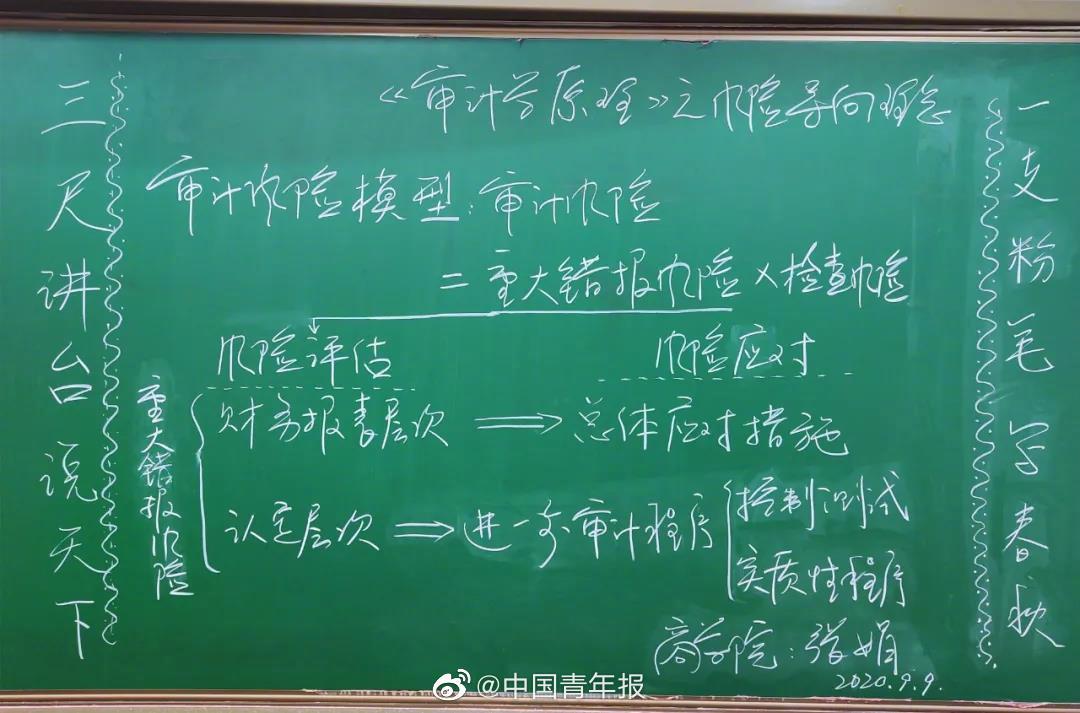 《审计学原理》之风险导向理念
一支粉笔写春秋
三尺讲台说天下
审计风险模型：审计风险
=重大错报风险×检查风险
风险评估 风险应对
重大错报风险
财务报表层次 ⇒ 总体应对措施
认定层次 ⇒ 进一步审计程序
控制测试
实质性程序
商学院：张娟
2020.9.9.
@中国青年报